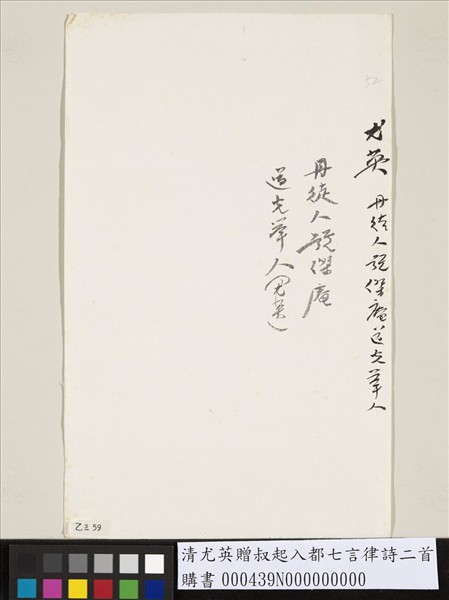 52
尤英 丹徒人號傑庵道光舉人
丹徒人號傑庵
道光舉人(尤英)
乙三59
清尤英贈叔起入都七言律詩二首
購書 000439N000000000